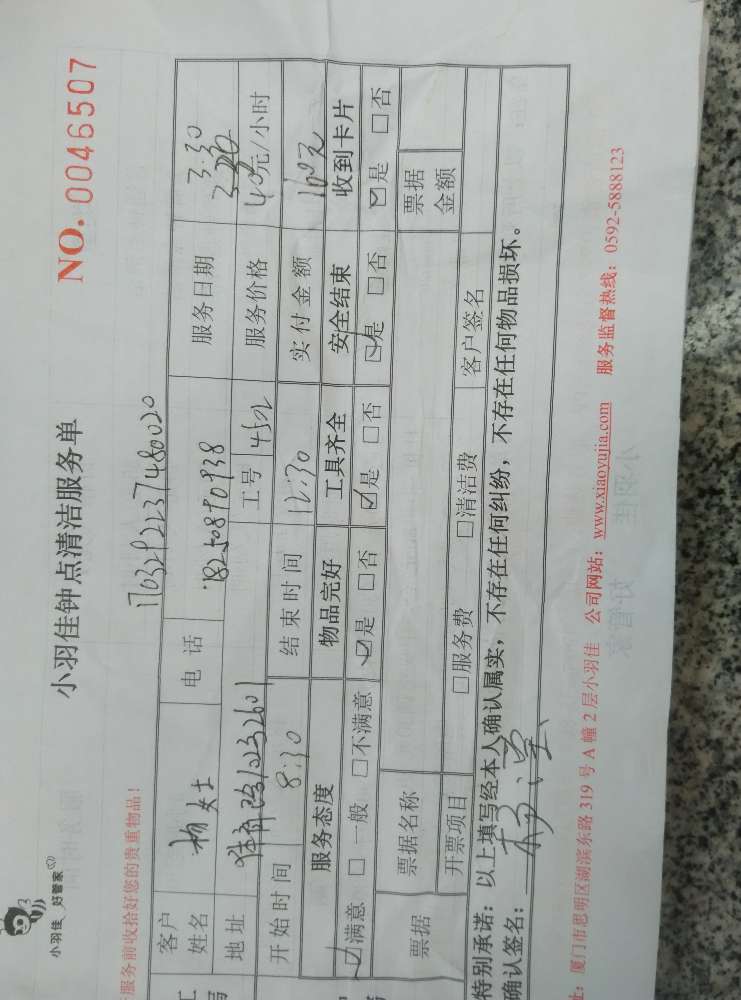 小羽佳 好管家
小羽佳钟点清洁服务单
NO. 0046507
服务前收拾好您的贵重物品！
客户姓名 女士 电话 服务日期 3.30
地址 工号 服务价格 40元/小时
开始时间 8:30 结束时间 12:30 实付金额 160元
服务态度 物品完好 工具齐全 安全结束 收到卡片
☑满意 □一般 □不满意 ☑是 □否 ☑是 □否 ☑是 □否 ☑是 □否
票据 票据名称 票据金额
开票项目 □服务费 □清洁费 客户签名
特别承诺：以上填写经本人确认属实，不存在任何纠纷，不存在任何物品损坏。
确认签名：
址：厦门市思明区湖滨东路 319 号 A 幢 2 层小羽佳 公司网站：www.xiaoyujia.com 服务监督热线：0592-5888123